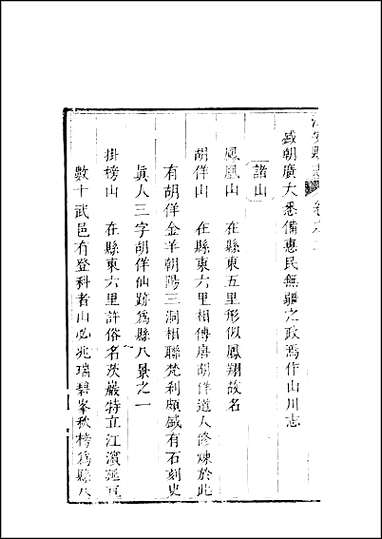 盛朝廣大悉備惠民無疆之政焉作山川志
諸山
鳳凰山 在縣東五里形似鳳翔故名
胡佯山 在縣東六里相傳唐胡佯道人修煉於此
有胡佯金羊朝陽三洞相聯梵利頗盛有石刻史
眞人三字胡佯仙跡為縣八景之一
掛榜山 在縣東六里許俗名茨巖特立江濱延亘
數十武邑有登科者山必兆瑞碧峯秋榜為縣八